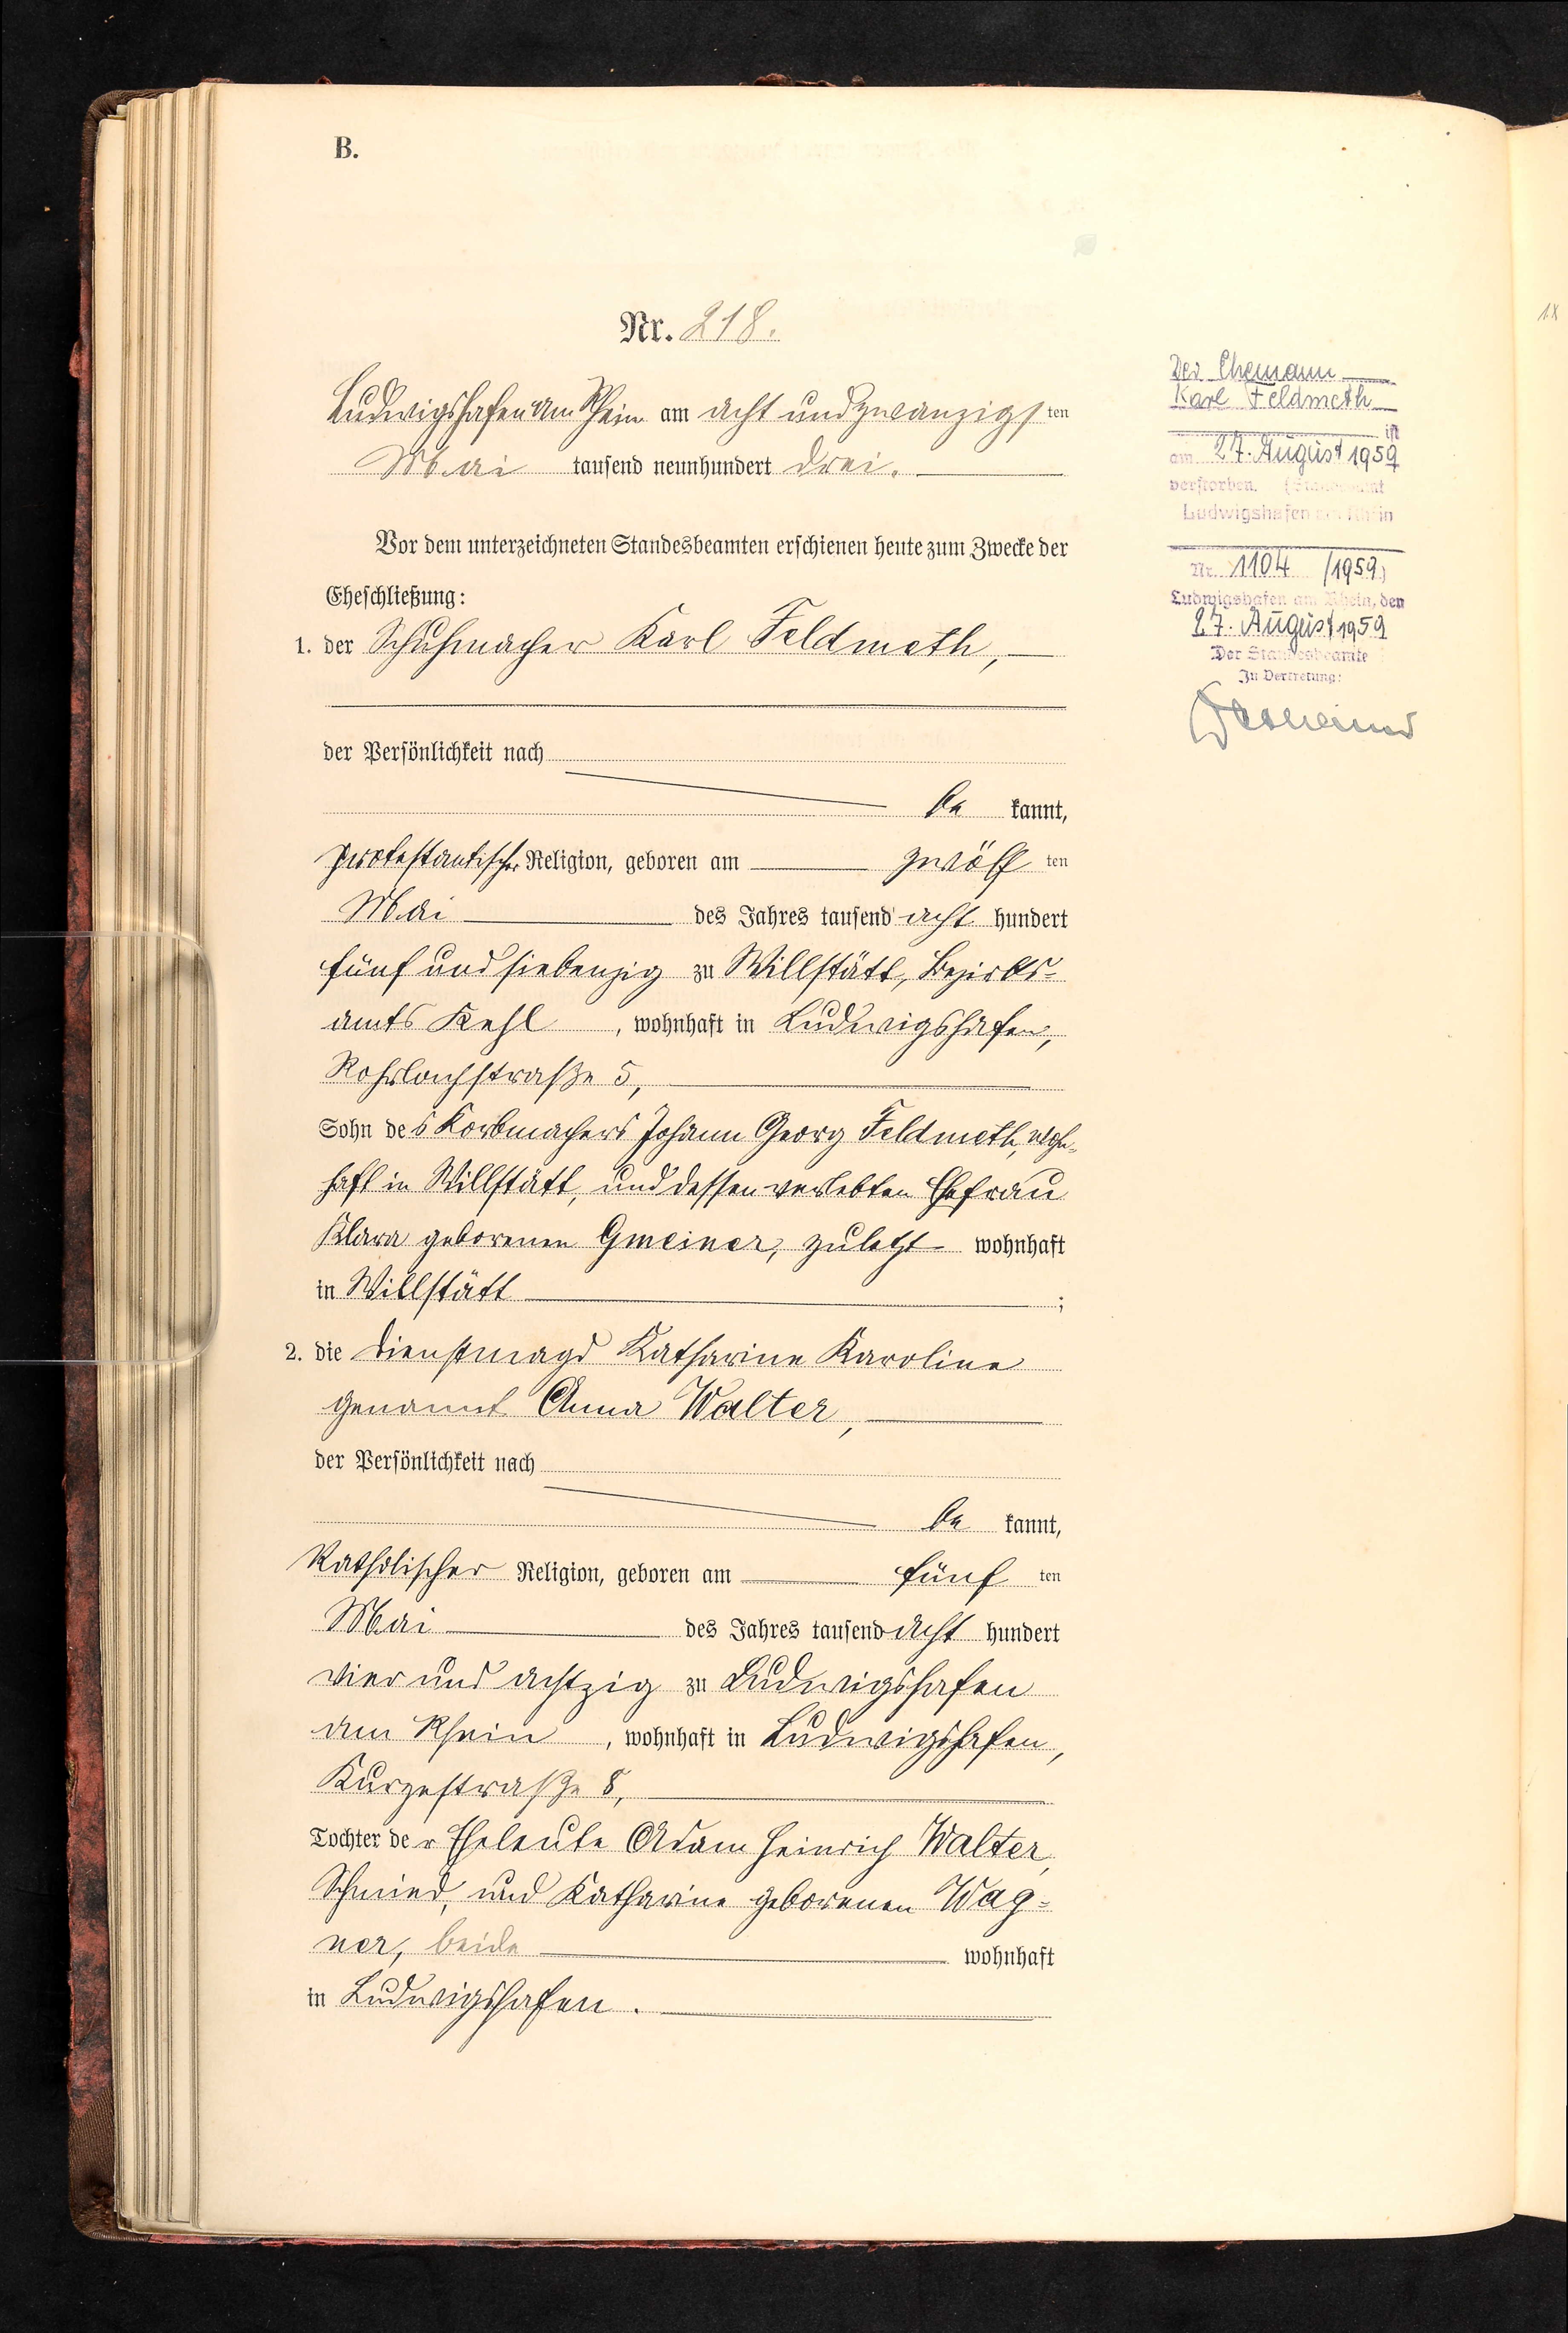 B.
Nr. 218.
Ludwigshafen am Rhein am acht und zwanzigsten
Mai tausend neunhundert drei.
Vor dem unterzeichneten Standesbeamten erschienen heute zum Zwecke der
Eheschließung:
1. der Schuhmacher Karl Feldmeth,
der Persönlichkeit nach
be kannt,
protestantischer Religion, geboren am zwölf ten
Mai des Jahres tausend acht hundert
fünf und siebenzig zu Willstätt, Bezirks-
amts Kehl, wohnhaft in Ludwigshafen,
Rohrlachstraße 5,
Sohn des Korbmachers Johann Georg Feldmeth, wohn-
haft in Willstätt, und dessen verlebten Ehefrau
Klara geborenen Gmeiner, zuletzt wohnhaft
in Willstätt ;
2. die Dienstmagd Katharina Karolina
genannt Anna Walter,
der Persönlichkeit nach
be kannt,
Katholischer Religion, geboren am fünf ten
Mai des Jahres tausend acht hundert
vier und achtzig zu Ludwigshafen
am Rhein, wohnhaft in Ludwigshafen,
Kurzestraße 8,
Tochter der Eheleute Adam Heinrich Walter,
Schmied, und Katharina geborenen Wag-
ner, beide wohnhaft
in Ludwigshafen.
Der Ehemann
Karl Feldmeth
ist
am 27. August 1959
verstorben. (Standesamt
Ludwigshafen am Rhein
Nr. 1104 /1959)
Ludwigshafen am Rhein, den
27. August 1959
Der Standesbeamte
In Vertretung: